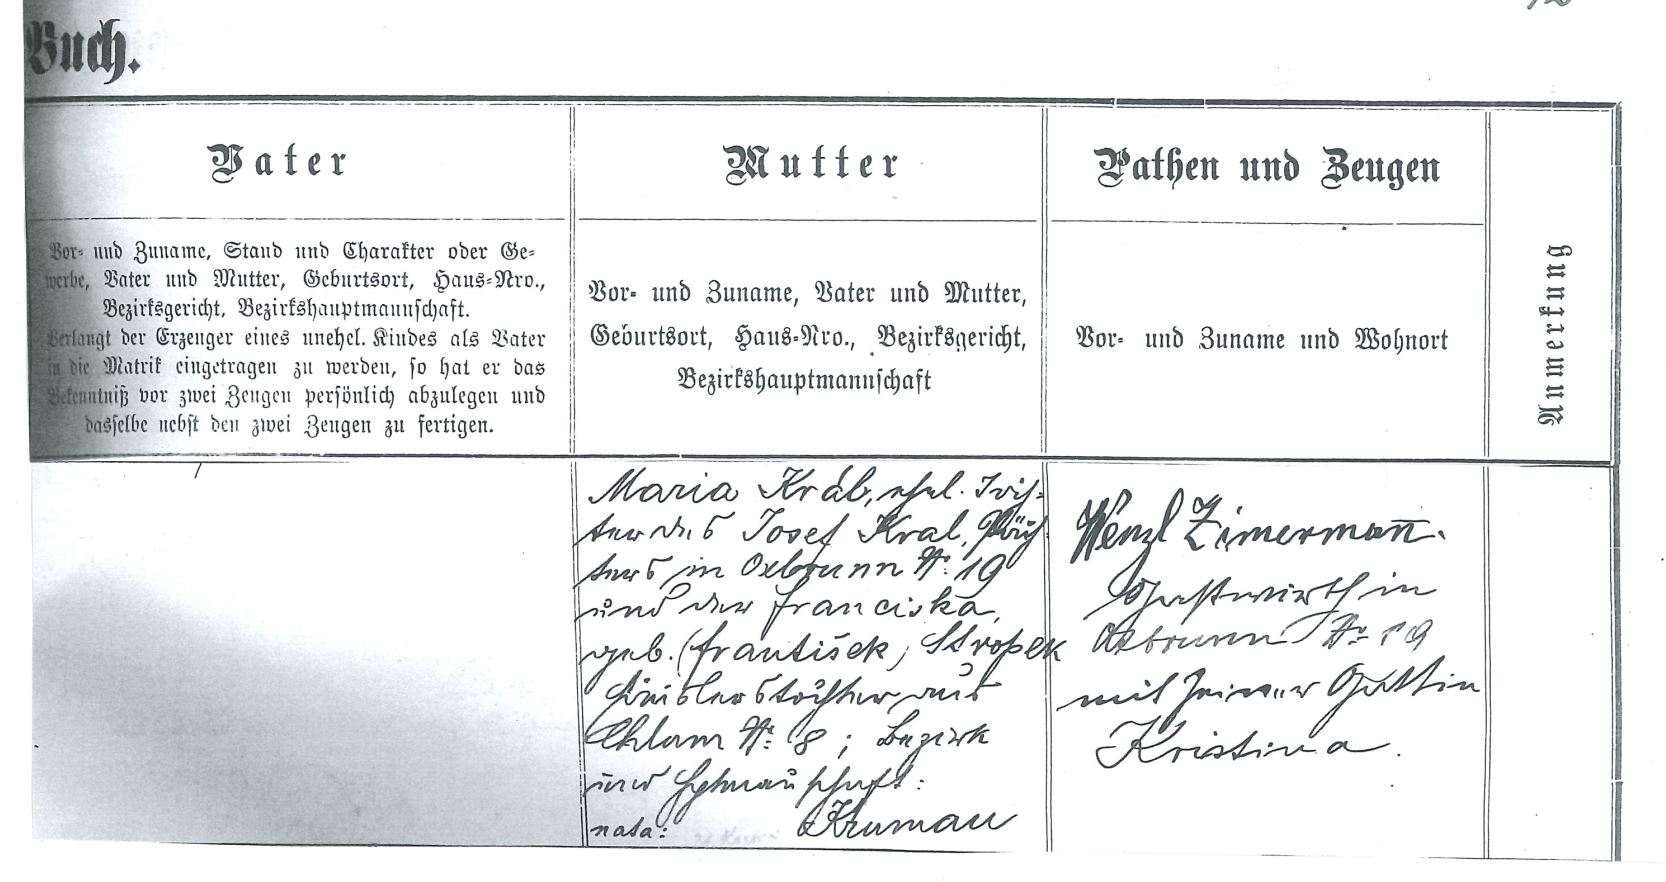 Buch.
Vater
Mutter
Pathen und Zeugen
Anmerkung
Vor- und Zuname, Stand und Charakter oder Ge-
werbe, Vater und Mutter, Geburtsort, Haus-Nro.,
Bezirksgericht, Bezirkshauptmannschaft.
Verlangt der Erzeuger eines unehel. Kindes als Vater
in die Matrik eingetragen zu werden, so hat er das
Bekenntniß vor zwei Zeugen persönlich abzulegen und
dasselbe nebst den zwei Zeugen zu fertigen.
Vor- und Zuname, Vater und Mutter,
Geburtsort, Haus-Nro., Bezirksgericht,
Bezirkshauptmannschaft
Vor- und Zuname und Wohnort
Maria Král, ehel. Toch-
ter des Josef Kral, Päch-
ters in Oxbrunn N: 19
und der Franciska,
geb. (František, Stropek
Häuslerstochter aus
Chlum N: 8; Bezirk
und Hptmannschaft:
nata: Krumau
Wenzl Zimermann.
Gastwirth in
Oxbrunn N: 19
mit seiner Gattin
Kristina.